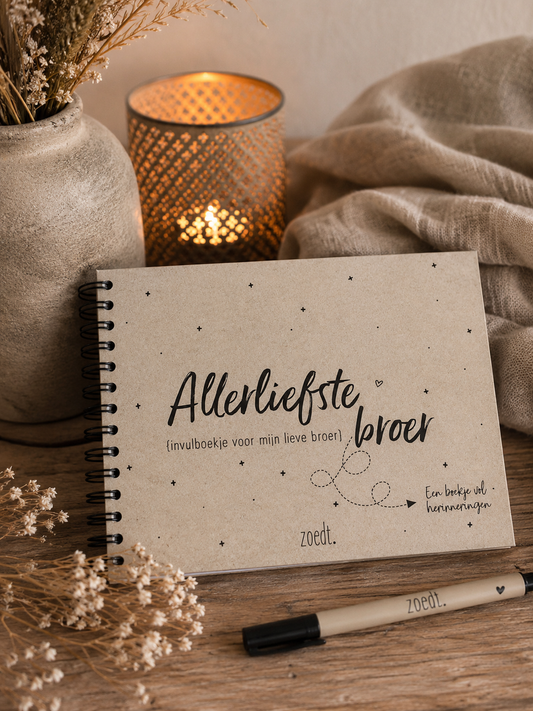 Allerliefste
broer
{invulboekje voor mijn lieve broer}
Een boekje vol
herinneringen
zoedt.
zoedt.